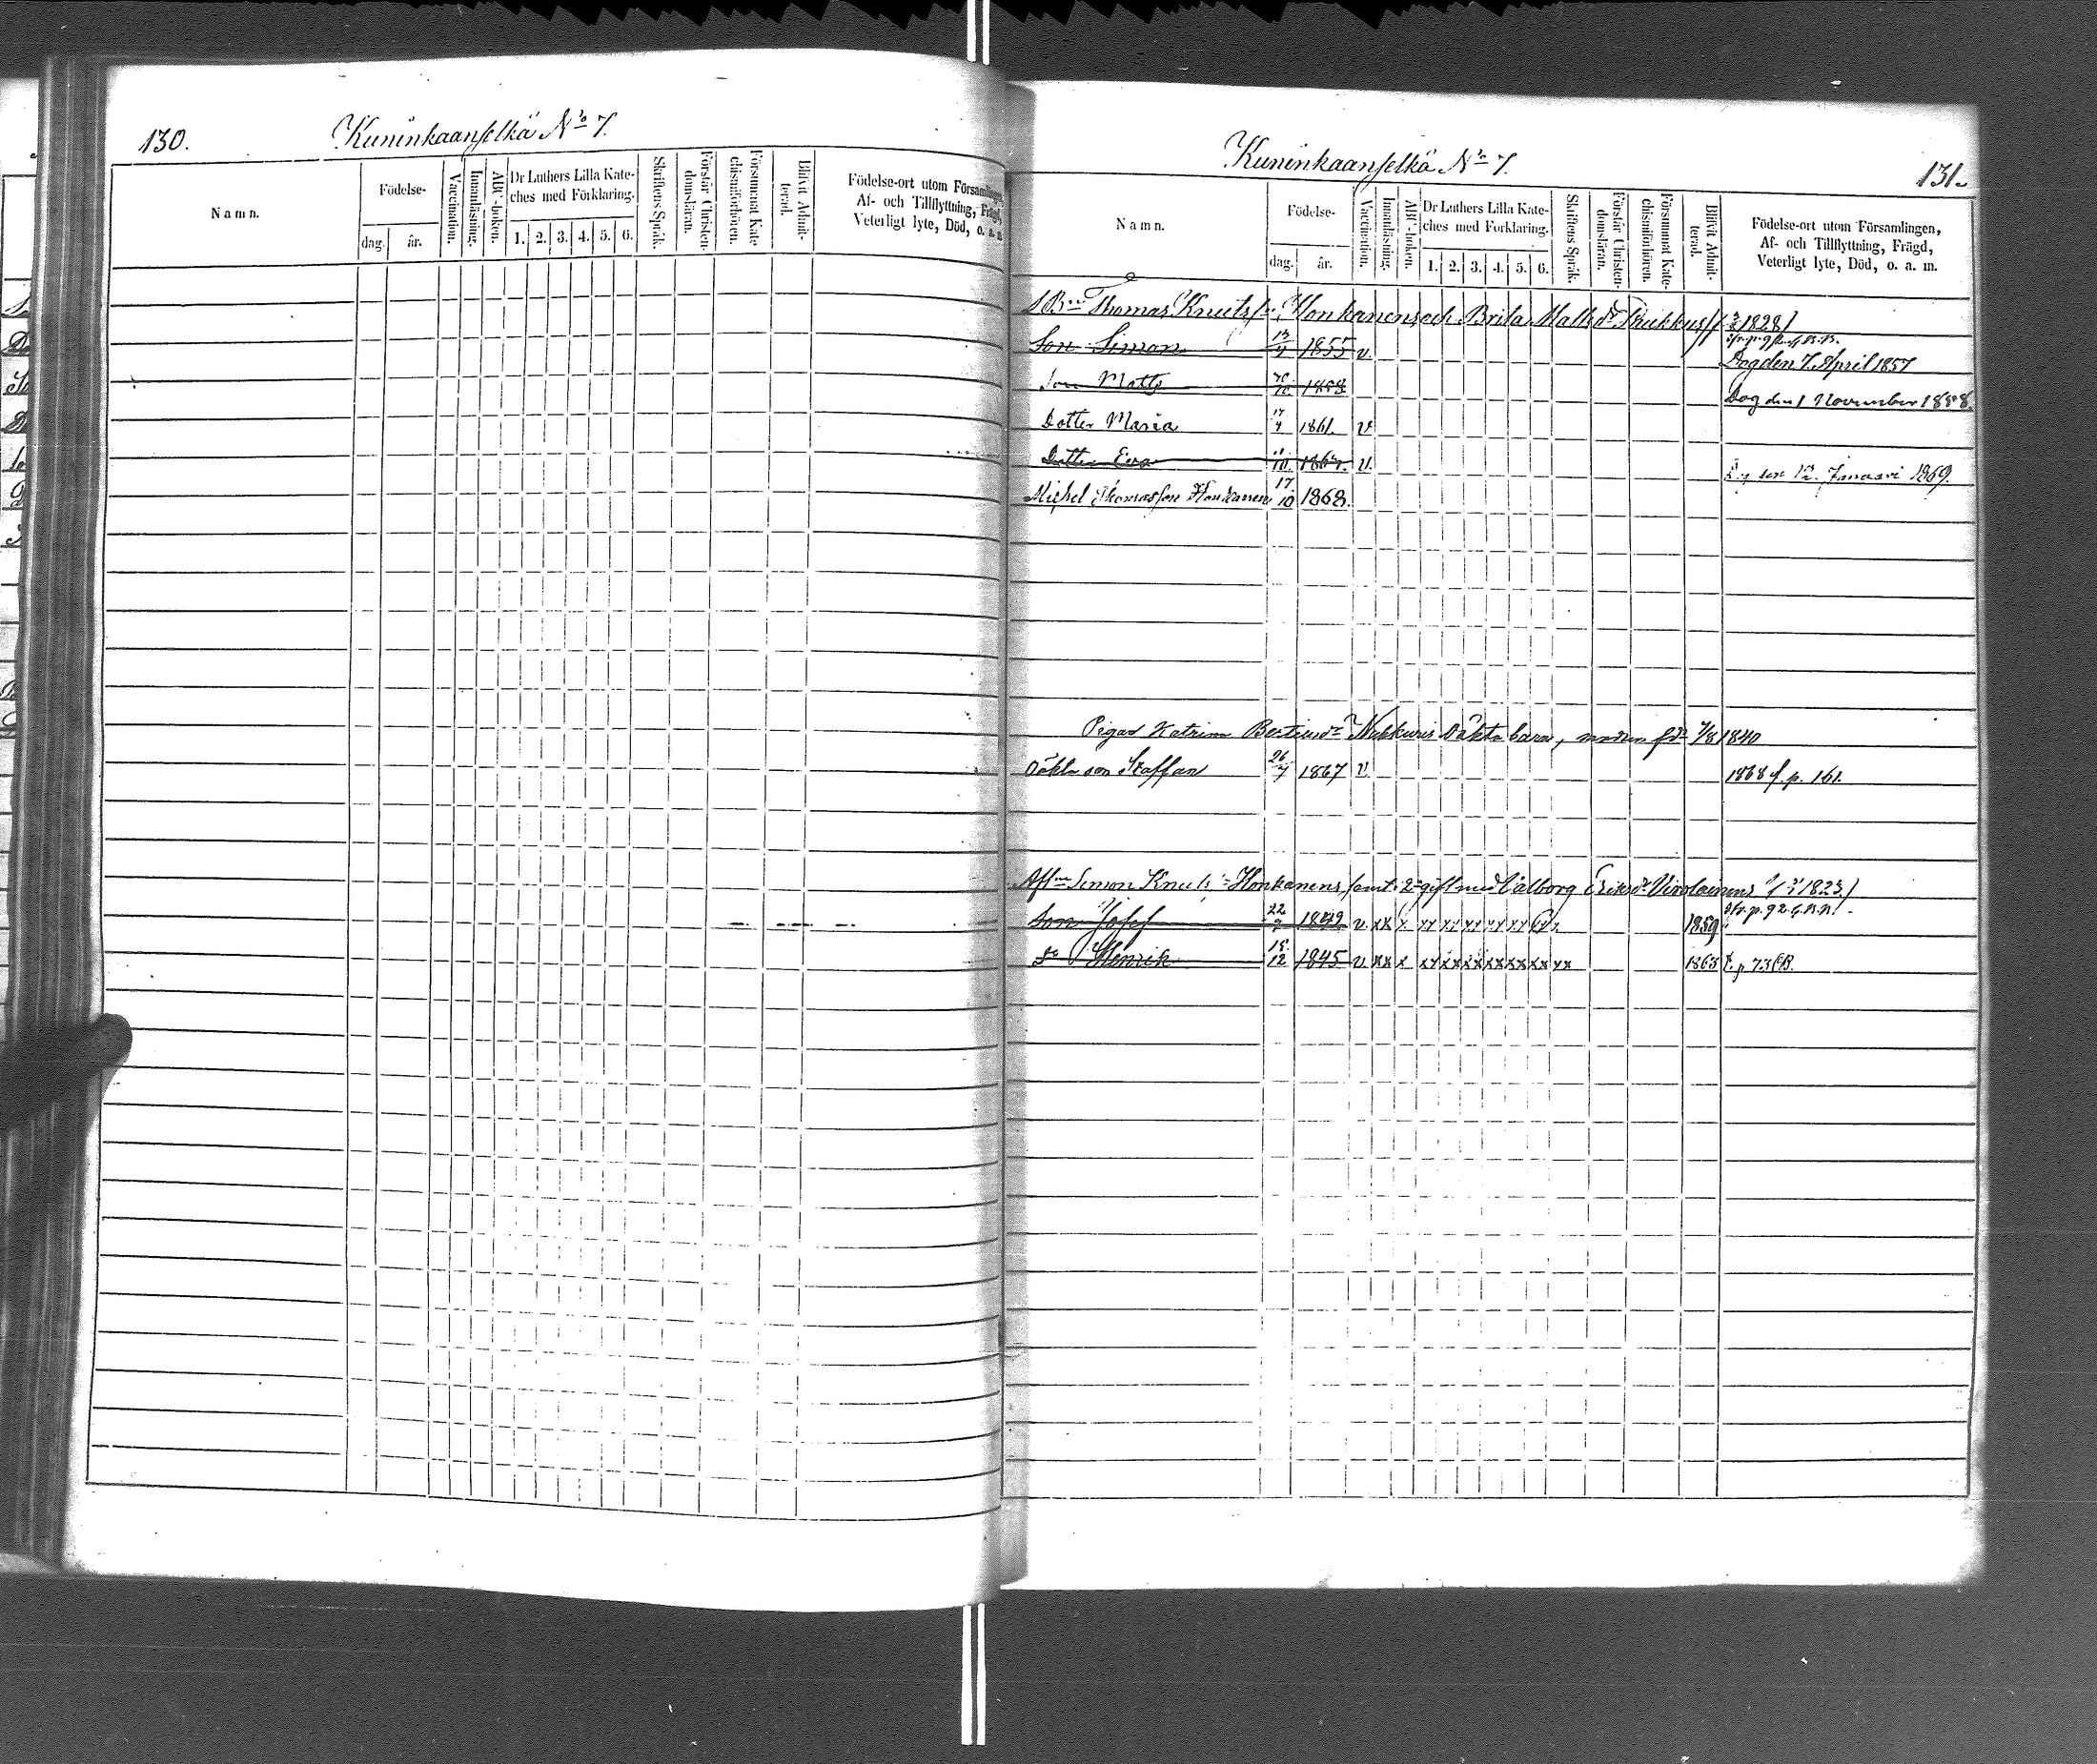 130.
Kuninkaanselkä No 7.
Namn.
Födelse-
dag.
år.
Vaccination.
Innanläsning.
ABC-boken.
Dr Luthers Lilla Kate-
ches med Förklaring.
1. 2. 3. 4. 5. 6.
Skriftens Språk.
Förstår Christen-
domsläran.
Försummat Kate-
chismiförhören.
Blifvit Admit-
terad.
Födelse-ort utom Församlingen,
Af- och Tillflyttning, Frägd,
Veterligt lyte, Död, o. a. m.
Kuninkaanselkä No 7.
131.
Namn.
Födelse-
dag.
år.
Vaccination.
Innanläsning.
ABC-boken.
Dr Luthers Lilla Kate-
ches med Förklaring.
1. 2. 3. 4. 5. 6.
Skriftens Språk.
Förstår Christen-
domsläran.
Försummat Kate-
chismiförhören.
Blifvit Admit-
terad.
Födelse-ort utom Församlingen,
Af- och Tillflyttning, Frägd,
Veterligt lyte, Död, o. a. m.
Thomas Knuts Honkanens och Brita Matts dr 1828)
Son Simon 1855 v. Dog den 7. April 1857
Son Matts 1858 Dog den 1 November 1858.
Dotter Maria 17/4 1861. v.
Dotter Eva v. Januari 1869.
Michel Thomasson Honkanen 17/10 1868.
Pigan Katrina Nukkuris oäkta barn, modren född 7/8 1840
Oäkta son Staffan 26/7 1867 v. 1868 f. p. 161.
Simon Knuts Honkanens samt 2a gift med Valborg Eriksdr 1823)
Son Josef 1842 v. xx x xx xx xx xx xx 1859
do Henrik 15/12 1845 v. xx x xx xx xx xx xx xx xx 1863 p 73